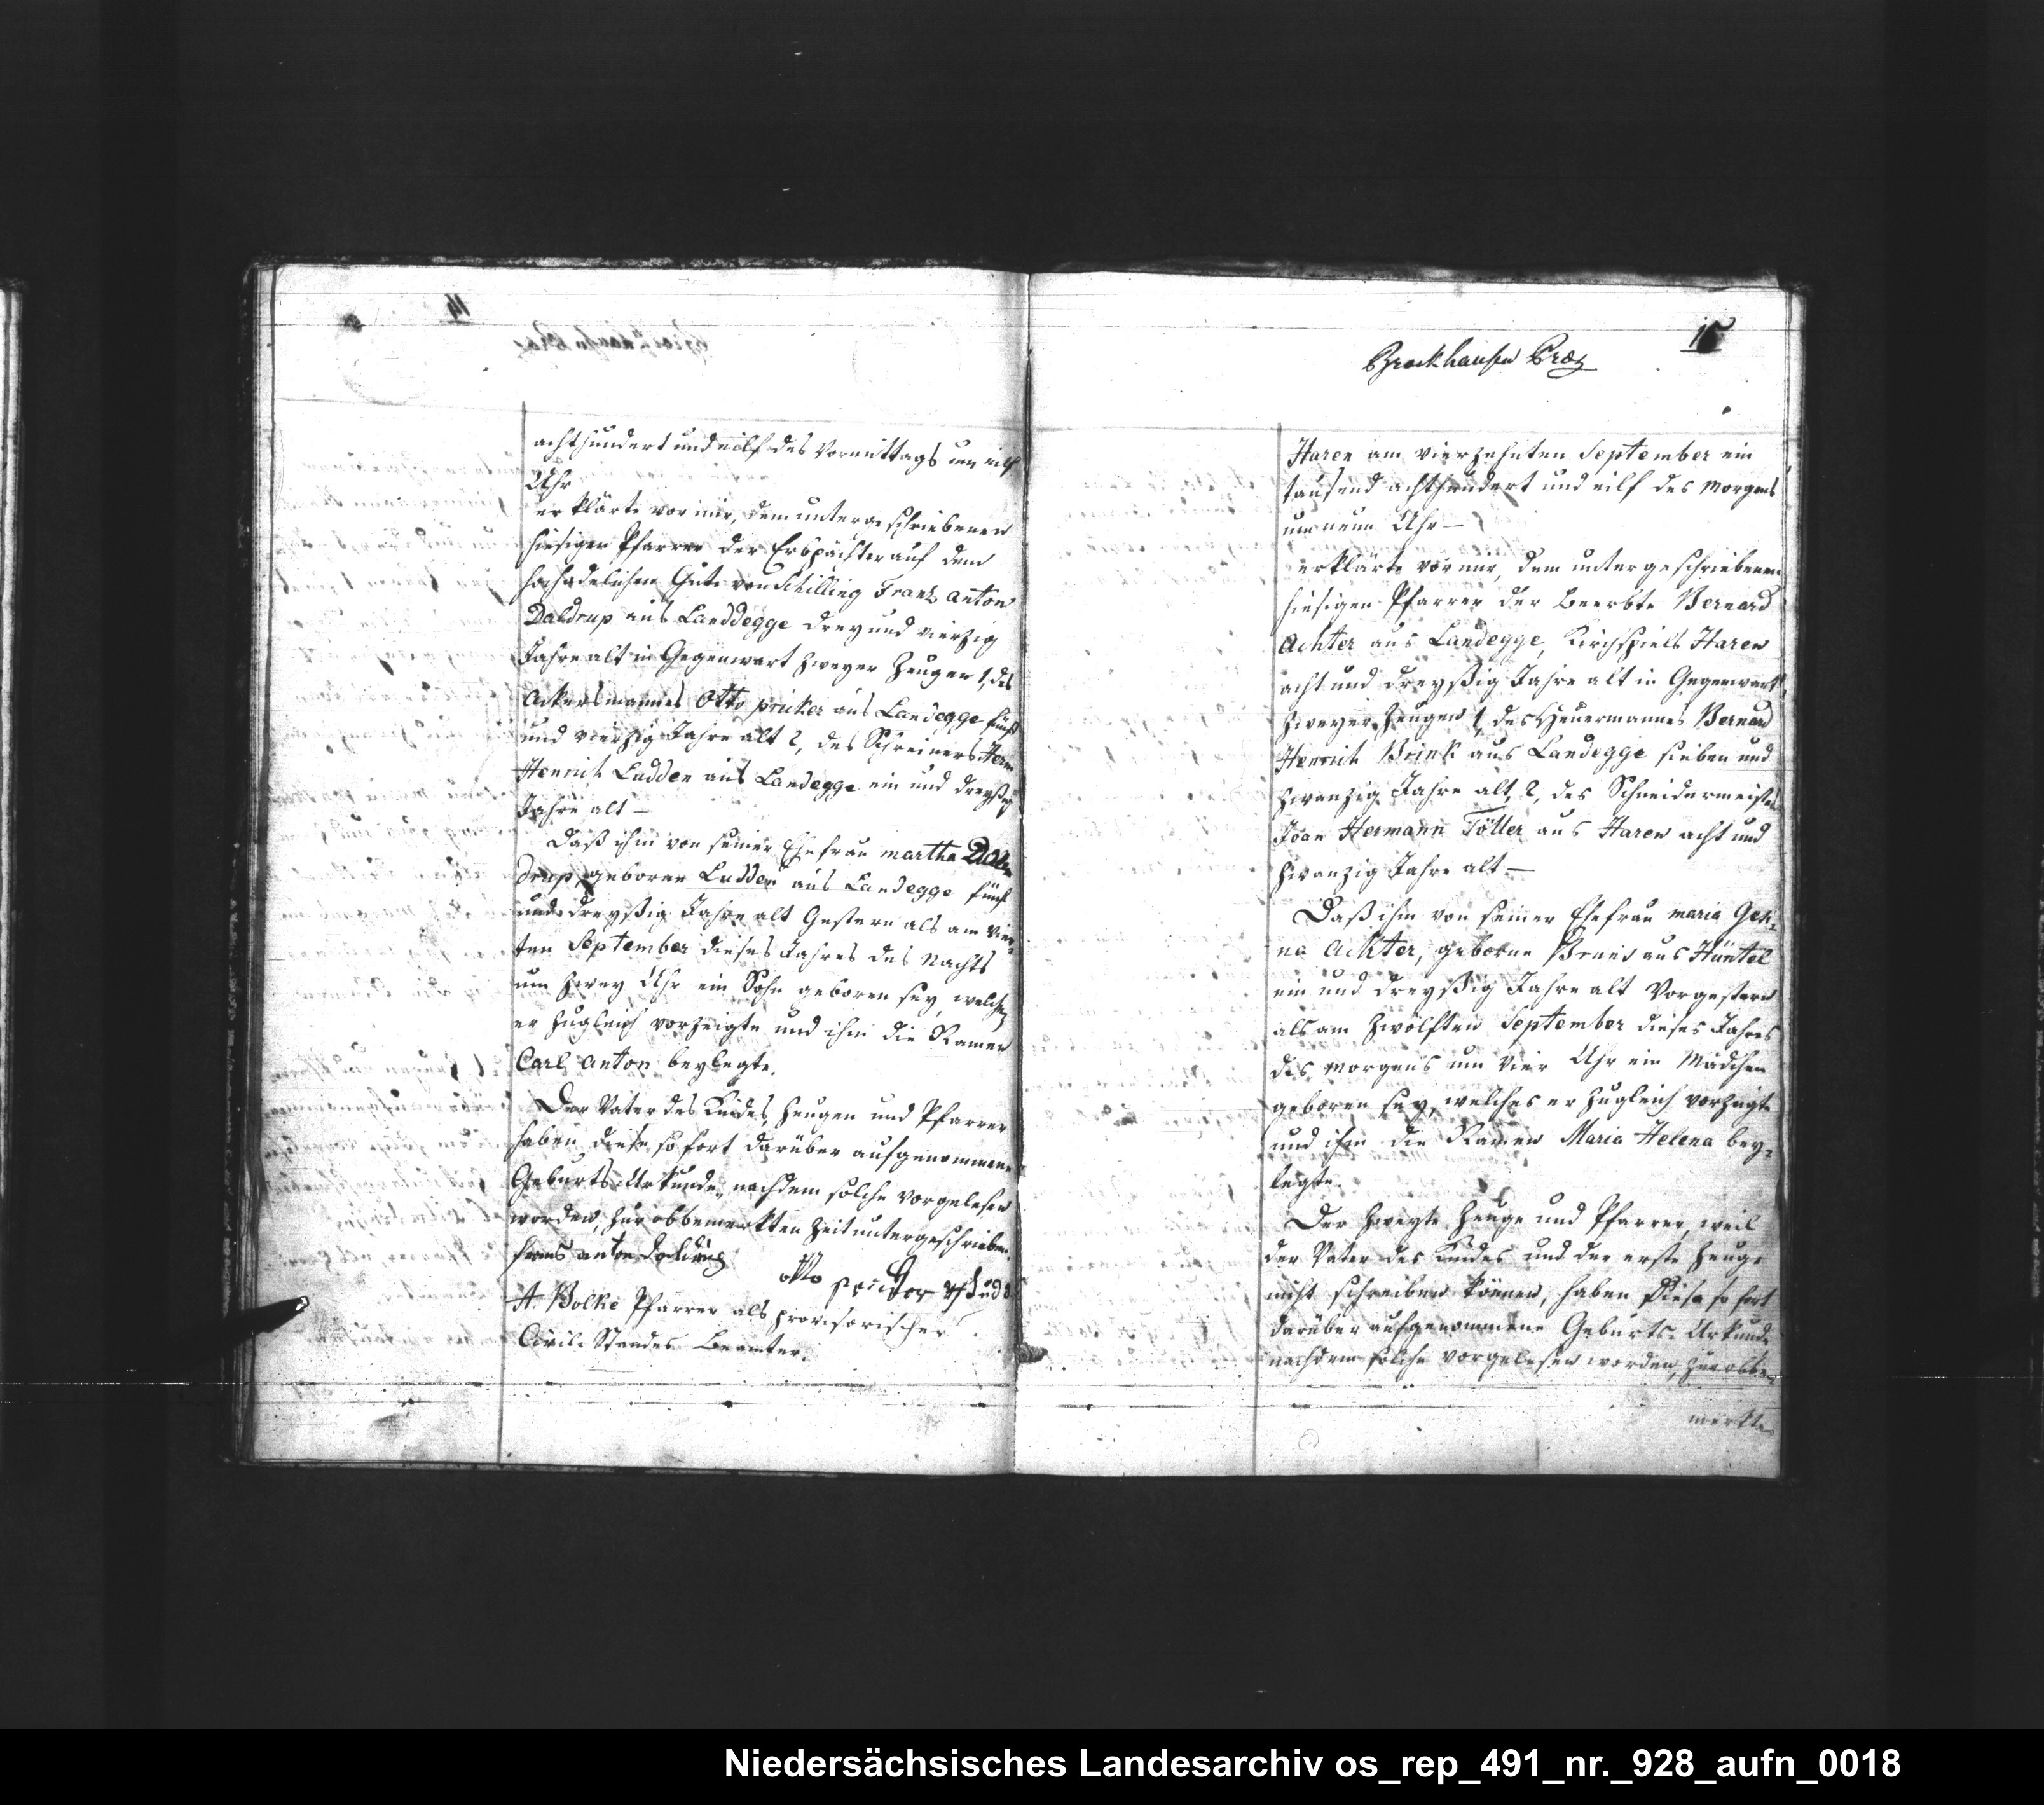 achthundert und eilf des Vormittags um eilf
Uhr
erklärte vor mir, dem untergeschriebenen
hiesigen Pfarrer der Erbpächter auf dem
hochadelichen Gute von Schilling Franz Anton
Daldrup aus Landdegge drey und vierzig
Jahre alt in Gegenwart zweyer Zeugen 1, des
Ackersmannes Otto pricker aus Landegge fünf
und vierzig Jahre alt 2, des Schreiners Herm
Henrich Ludden aus Landegge ein und dreyßig
Jahre alt —
Daß ihm von seiner Ehefrau martha Dal¬
drup, geborne Ludden aus Landegge fünf
und dreyßig Jahre alt Gestern als am vier¬
ten September dieses Jahres des Nachts
um zwey Uhr ein Sohn geboren sey, welchen
er zugleich vorzeigte und ihm die Namen
Carl Anton beylegte.
Der Vater des Kindes, Zeugen und Pfarrer
haben diese sofort darüber aufgenommene
Geburts-Urkunde, nachdem solche vorgelesen
worden, zur obbemerkten Zeit untergeschrieben.
frans anton
otto
A. Bolke Pfarrer als provisorischer
Civil-Standes Beamter.
15
Brockhausen
Haren am vierzehnten September ein
tausend achthundert und eilf des Morgens
um neun Uhr —
erklärte vor mir, dem untergeschriebenen
hiesigen Pfarrer der Beerbte Bernard
Achter aus Landegge, Kirchspiels Haren
acht und dreyßig Jahre alt in Gegenwart
zweyer Zeugen 1, des Heuermannes Bernard
Henrich Brink aus Landegge sieben und
zwanzig Jahre alt, 2, des Schneidermeisters
Joan Hermann Töller aus Haren acht und
zwanzig Jahre alt —
Daß ihm von seiner Ehefrau maria Ge
na Achter, geborne aus Hüntel
ein und dreyßig Jahre alt Vorgestern
als am zwölften September dieses Jahres
des morgens um vier Uhr ein Mädchen
geboren sey, welches er zugleich vorzeigte
und ihm die Namen Maria Helena bey¬
legte.
Der zweyte Zeuge und Pfarrer, weil
der Vater des Kindes und der erste Zeuge
nicht schreiben können, haben diese sofort
darüber aufgenommene Geburts-Urkunde
nachdem solche vorgelesen worden, zur obbe¬
merkten
Niedersächsisches Landesarchiv os_rep_491_nr._928_aufn_0018